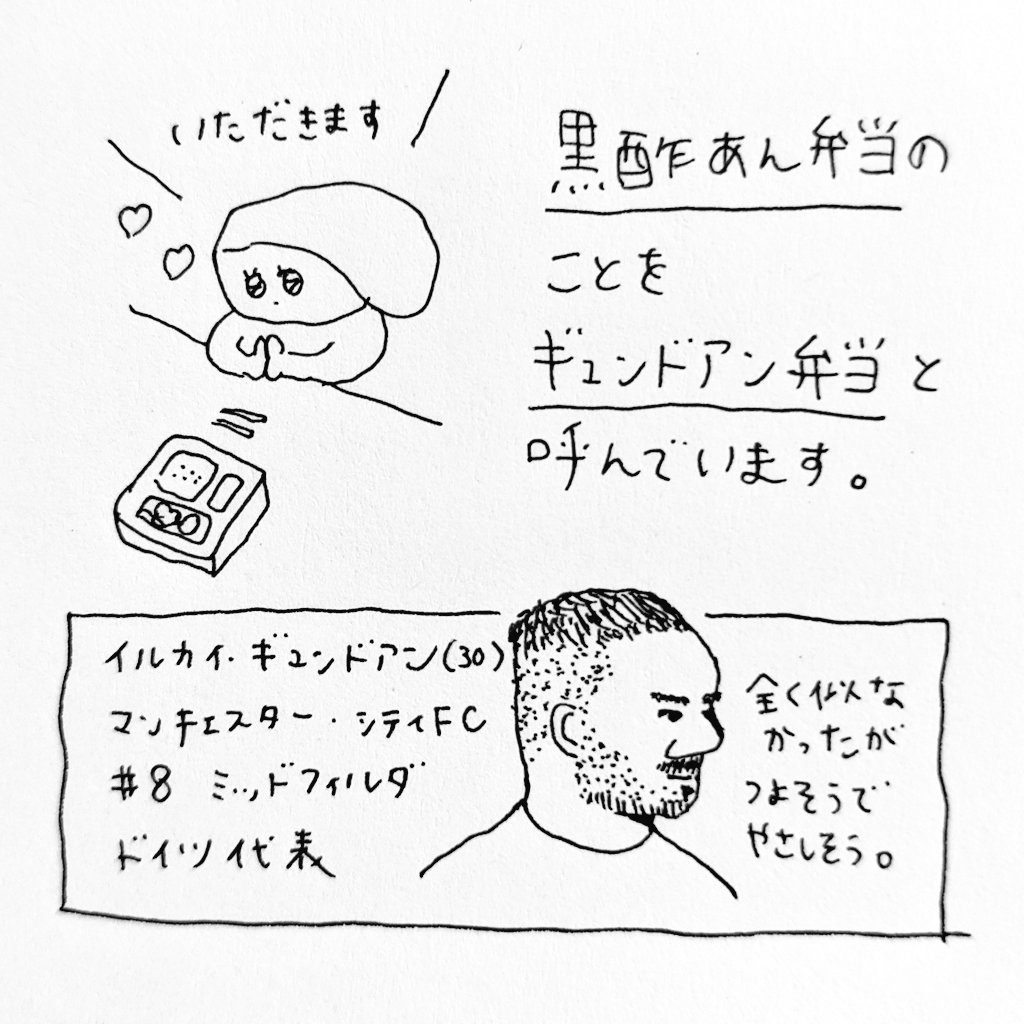 いただきます
黒酢あん弁当の
ことを
ギュンドアン弁当と
呼んでいます。
イルカイ・ギュンドアン(30)
マンチェスター・シティFC
#8 ミッドフィルダ
ドイツ代表
全く似な
かったが
つよそうで
やさしそう。